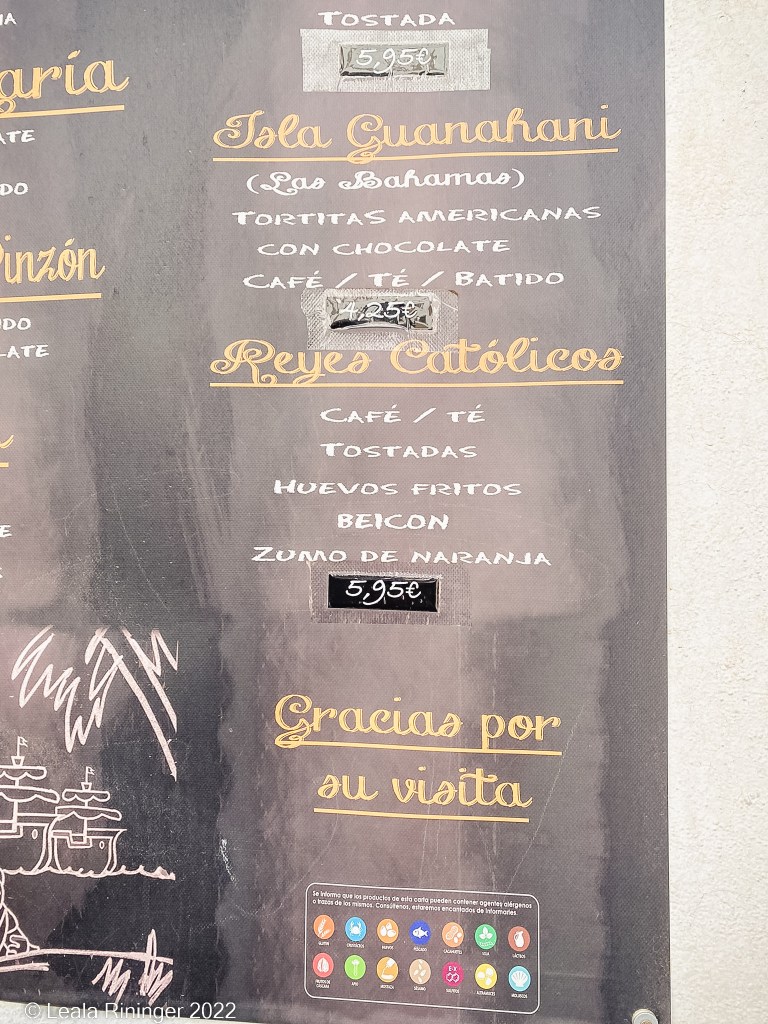 TOSTADA
5,95€
Isla Guanahani
(Las Bahamas)
TORTITAS AMERICANAS
CON CHOCOLATE
CAFÉ / TÉ / BATIDO
4,25€
Reyes Católicos
CAFÉ / TÉ
TOSTADAS
HUEVOS FRITOS
BEICON
ZUMO DE NARANJA
5,95€
Gracias por
su visita
Se informa que los productos de esta carta pueden contener agentes alérgenos
o trazas de los mismos. Consúltenos, estaremos encantados de informarles.
GLUTEN CRUSTÁCEOS HUEVOS PESCADO CACAHUETES SOJA LÁCTEOS
FRUTOS DE CÁSCARA APIO MOSTAZA SÉSAMO SULFITOS ALTRAMUCES MOLUSCOS
aría
ATE
DO
Pinzón
IDO
LATE
© Leala Rininger 2022